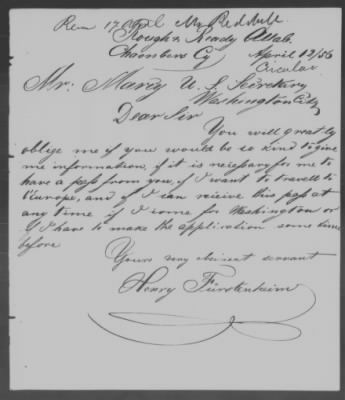 Rec 17 April Mr Reddall
Rough & Ready Allab.
Chambers Cy April 12/56
Circular
Mr: Marcy U. S. Secretary
Washington City
Dear Sir
You will greatly
oblige me if you would be so kind to give
me information, if it is necessary for me to
have a pass from you, if I want to travell to
Europe, and if I can reicive this pass at
any time if I come for Washington or
if I have to make the application some time
before
Yours very obeient servant
Henry Fürstenheim